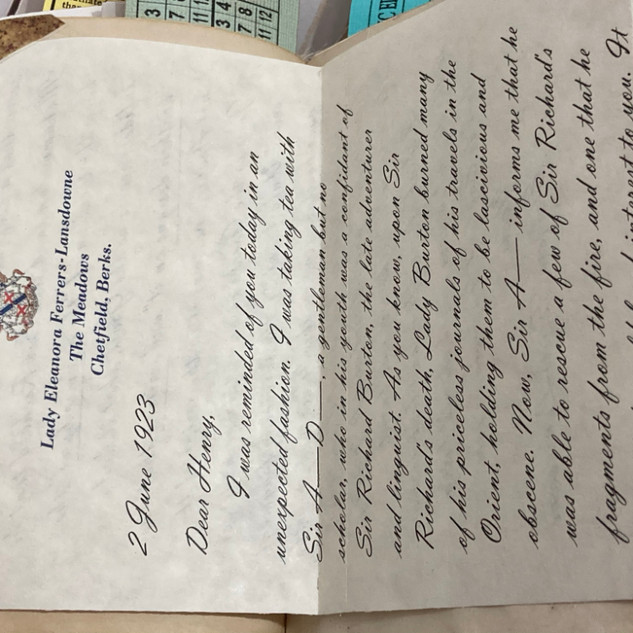 Lady Eleanora Ferrers-Lansdowne
The Meadows
Chetfield, Berks.
2 June 1923
Dear Henry,
I was reminded of you today in an
unexpected fashion. I was taking tea with
Sir A— D—, a gentleman but no
scholar, who in his youth was a confidant of
Sir Richard Burton, the late adventurer
and linguist. As you know, upon Sir
Richard's death, Lady Burton burned many
of his priceless journals of his travels in the
Orient, holding them to be lascivious and
obscene. Now, Sir A— informs me that he
was able to rescue a few of Sir Richard's
fragments from the fire, and one that he
interest to you. It
3
7
11
3 4
7 8
11 12